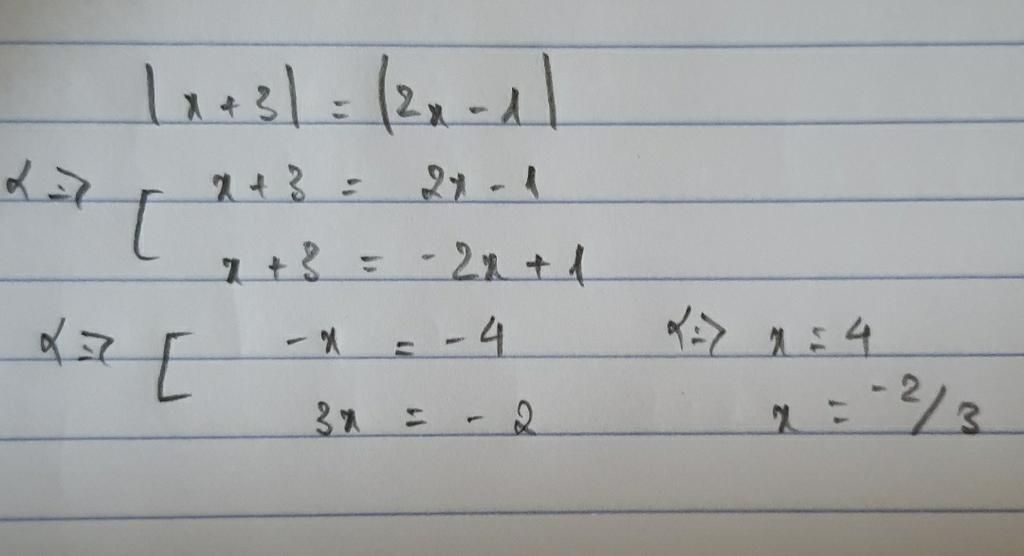 |x+3| = |2x-1|
<=> [ x+3 = 2x-1
x+3 = -2x+1
<=> [ -x = -4 <=> x = 4
3x = -2 x = -2/3